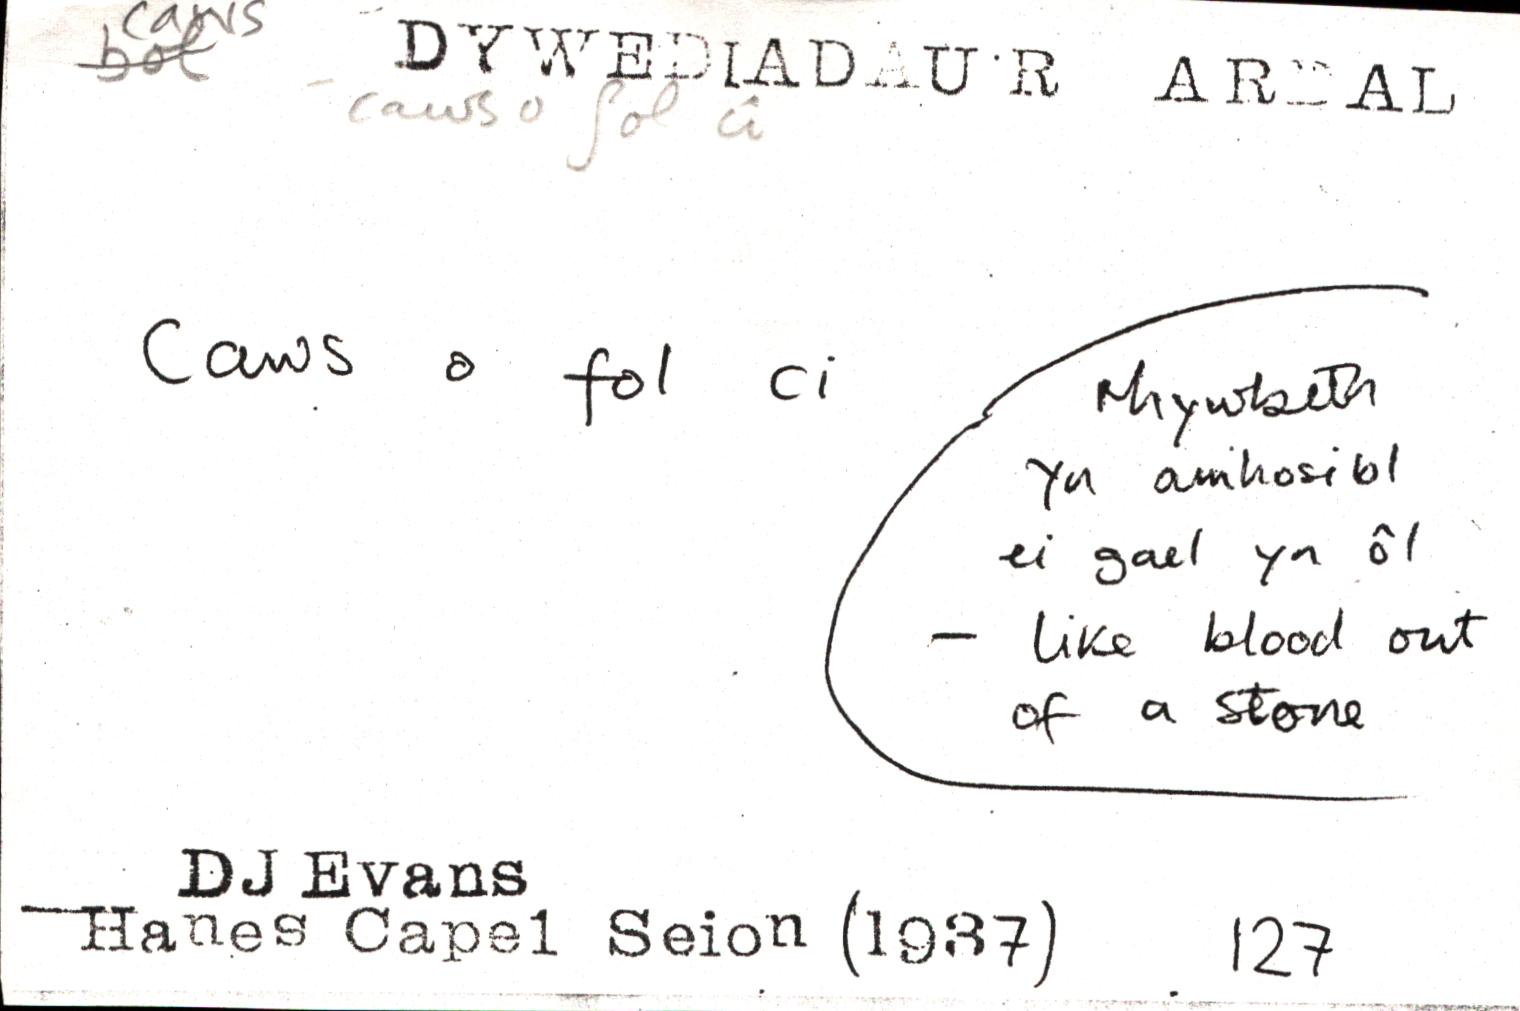 caws
bol
DYWEDIADAU'R ARDAL
caws o fol ci
Caws o fol ci
rhywbeth
yn amhosibl
ei gael yn ôl
– like blood out
of a stone
DJ Evans
Hanes Capel Seion (1937) 127